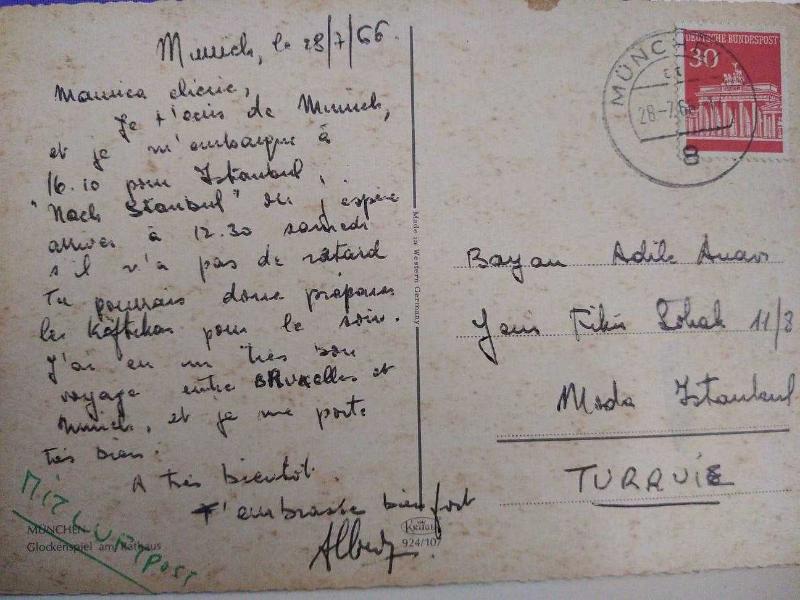 Munich, le 28/7/66.
Mamica chérie,
Je t'écris de Munich,
et je m'embarque à
16.10 pour Istanbul,
"Nach Istanbul" où j'espère
arriver à 12.30 samedi
s'il n'a pas de retard
Tu pourrais donc préparer
les Köftikas pour le soir.
J'ai eu un très bon
voyage entre BRUxelles et
Munich, et je me porte
très bien.
A très bientôt.
t'embrasse bien fort
Albert
MIT LUFTPOST
MÜNCHEN
Glockenspiel am Rathaus
Made in Western Germany
Krüger
924/107
DEUTSCHE BUNDESPOST
30
MÜNCHEN
28-7.66
8
Bayan Adile Anavi
Fikir Sokak 11/8
Moda Istanbul
TURQUIE